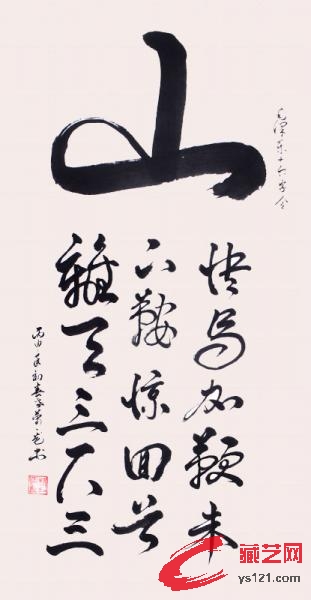 山
毛泽东十六字令
快马加鞭未
下鞍惊回首
離天三尺三
丙申年初春
藏艺网
ys121.com